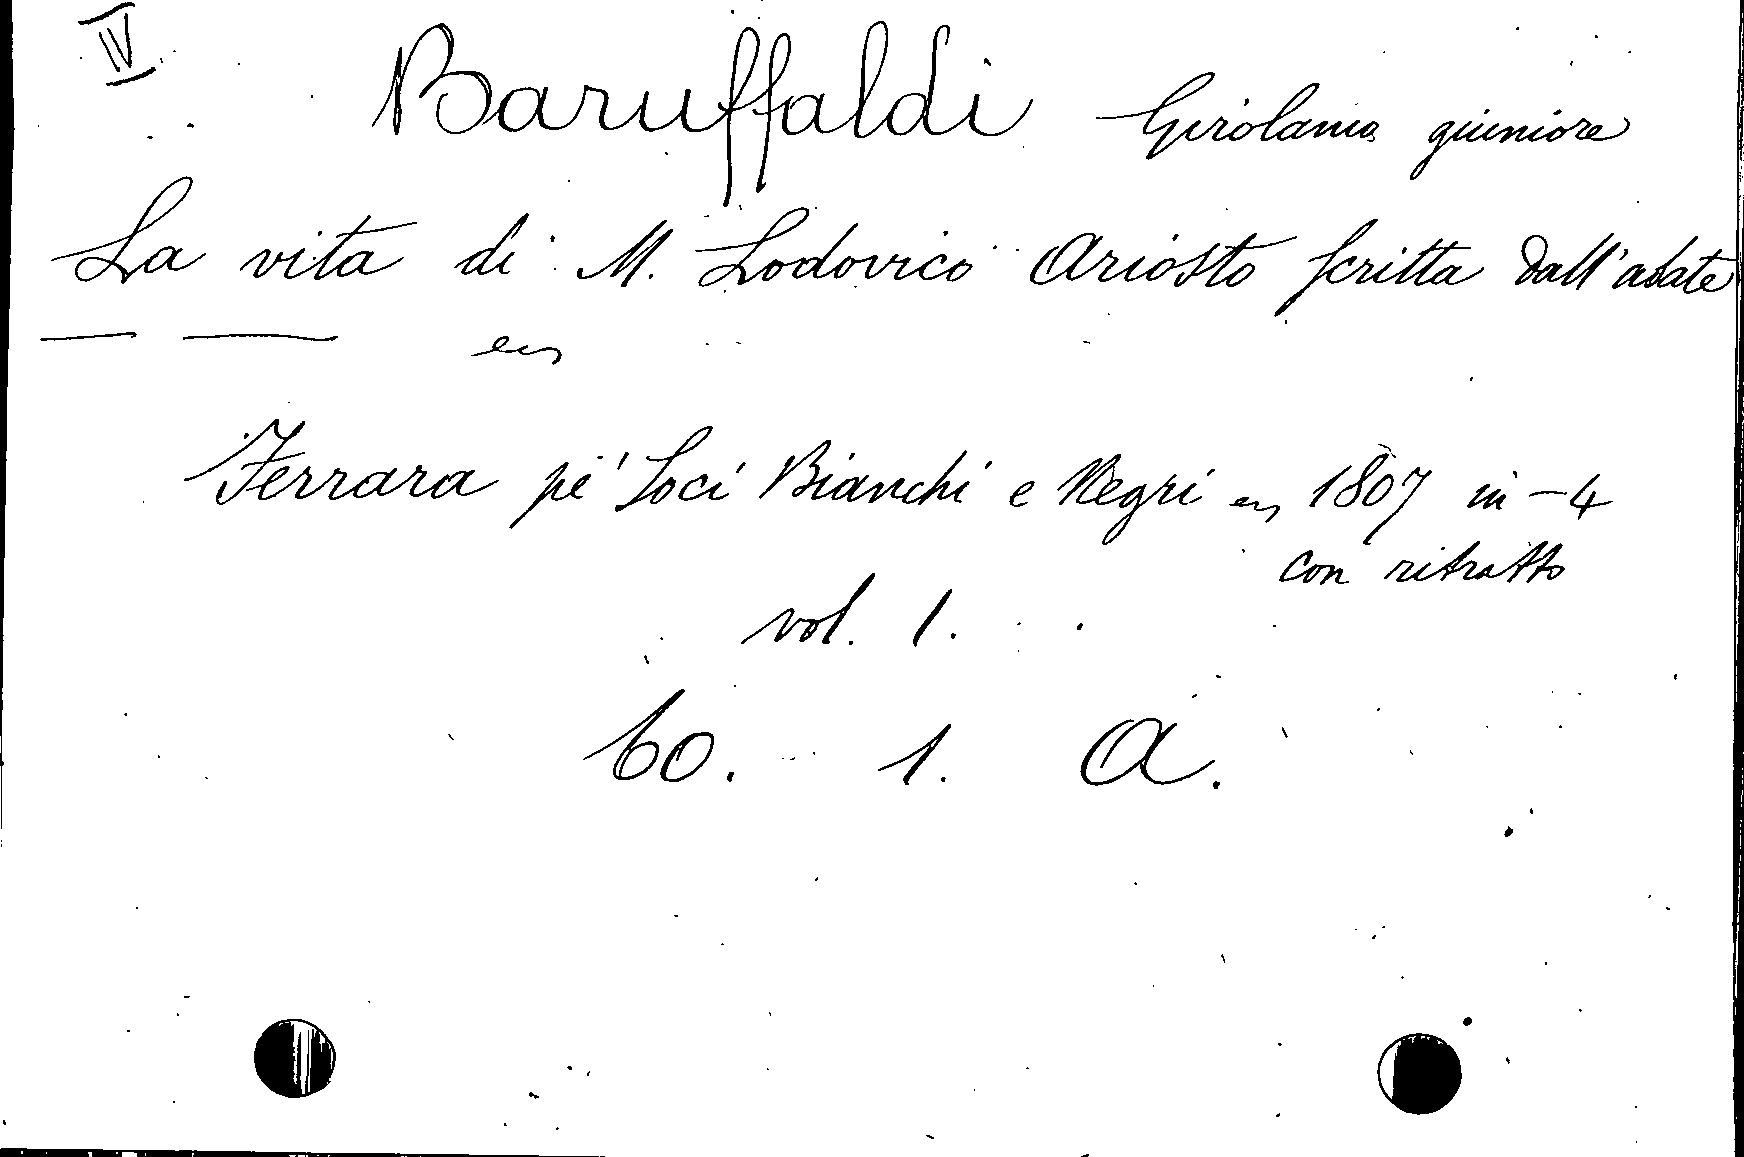 IV
Baruffaldi Girolamo giuniore
La vita di M. Lodovico Ariosto scritta dall'abate
— —
Ferrara pe' Soci Bianchi e Negri 1807 in-4
con ritratto
vol. 1.
60. 1. A.